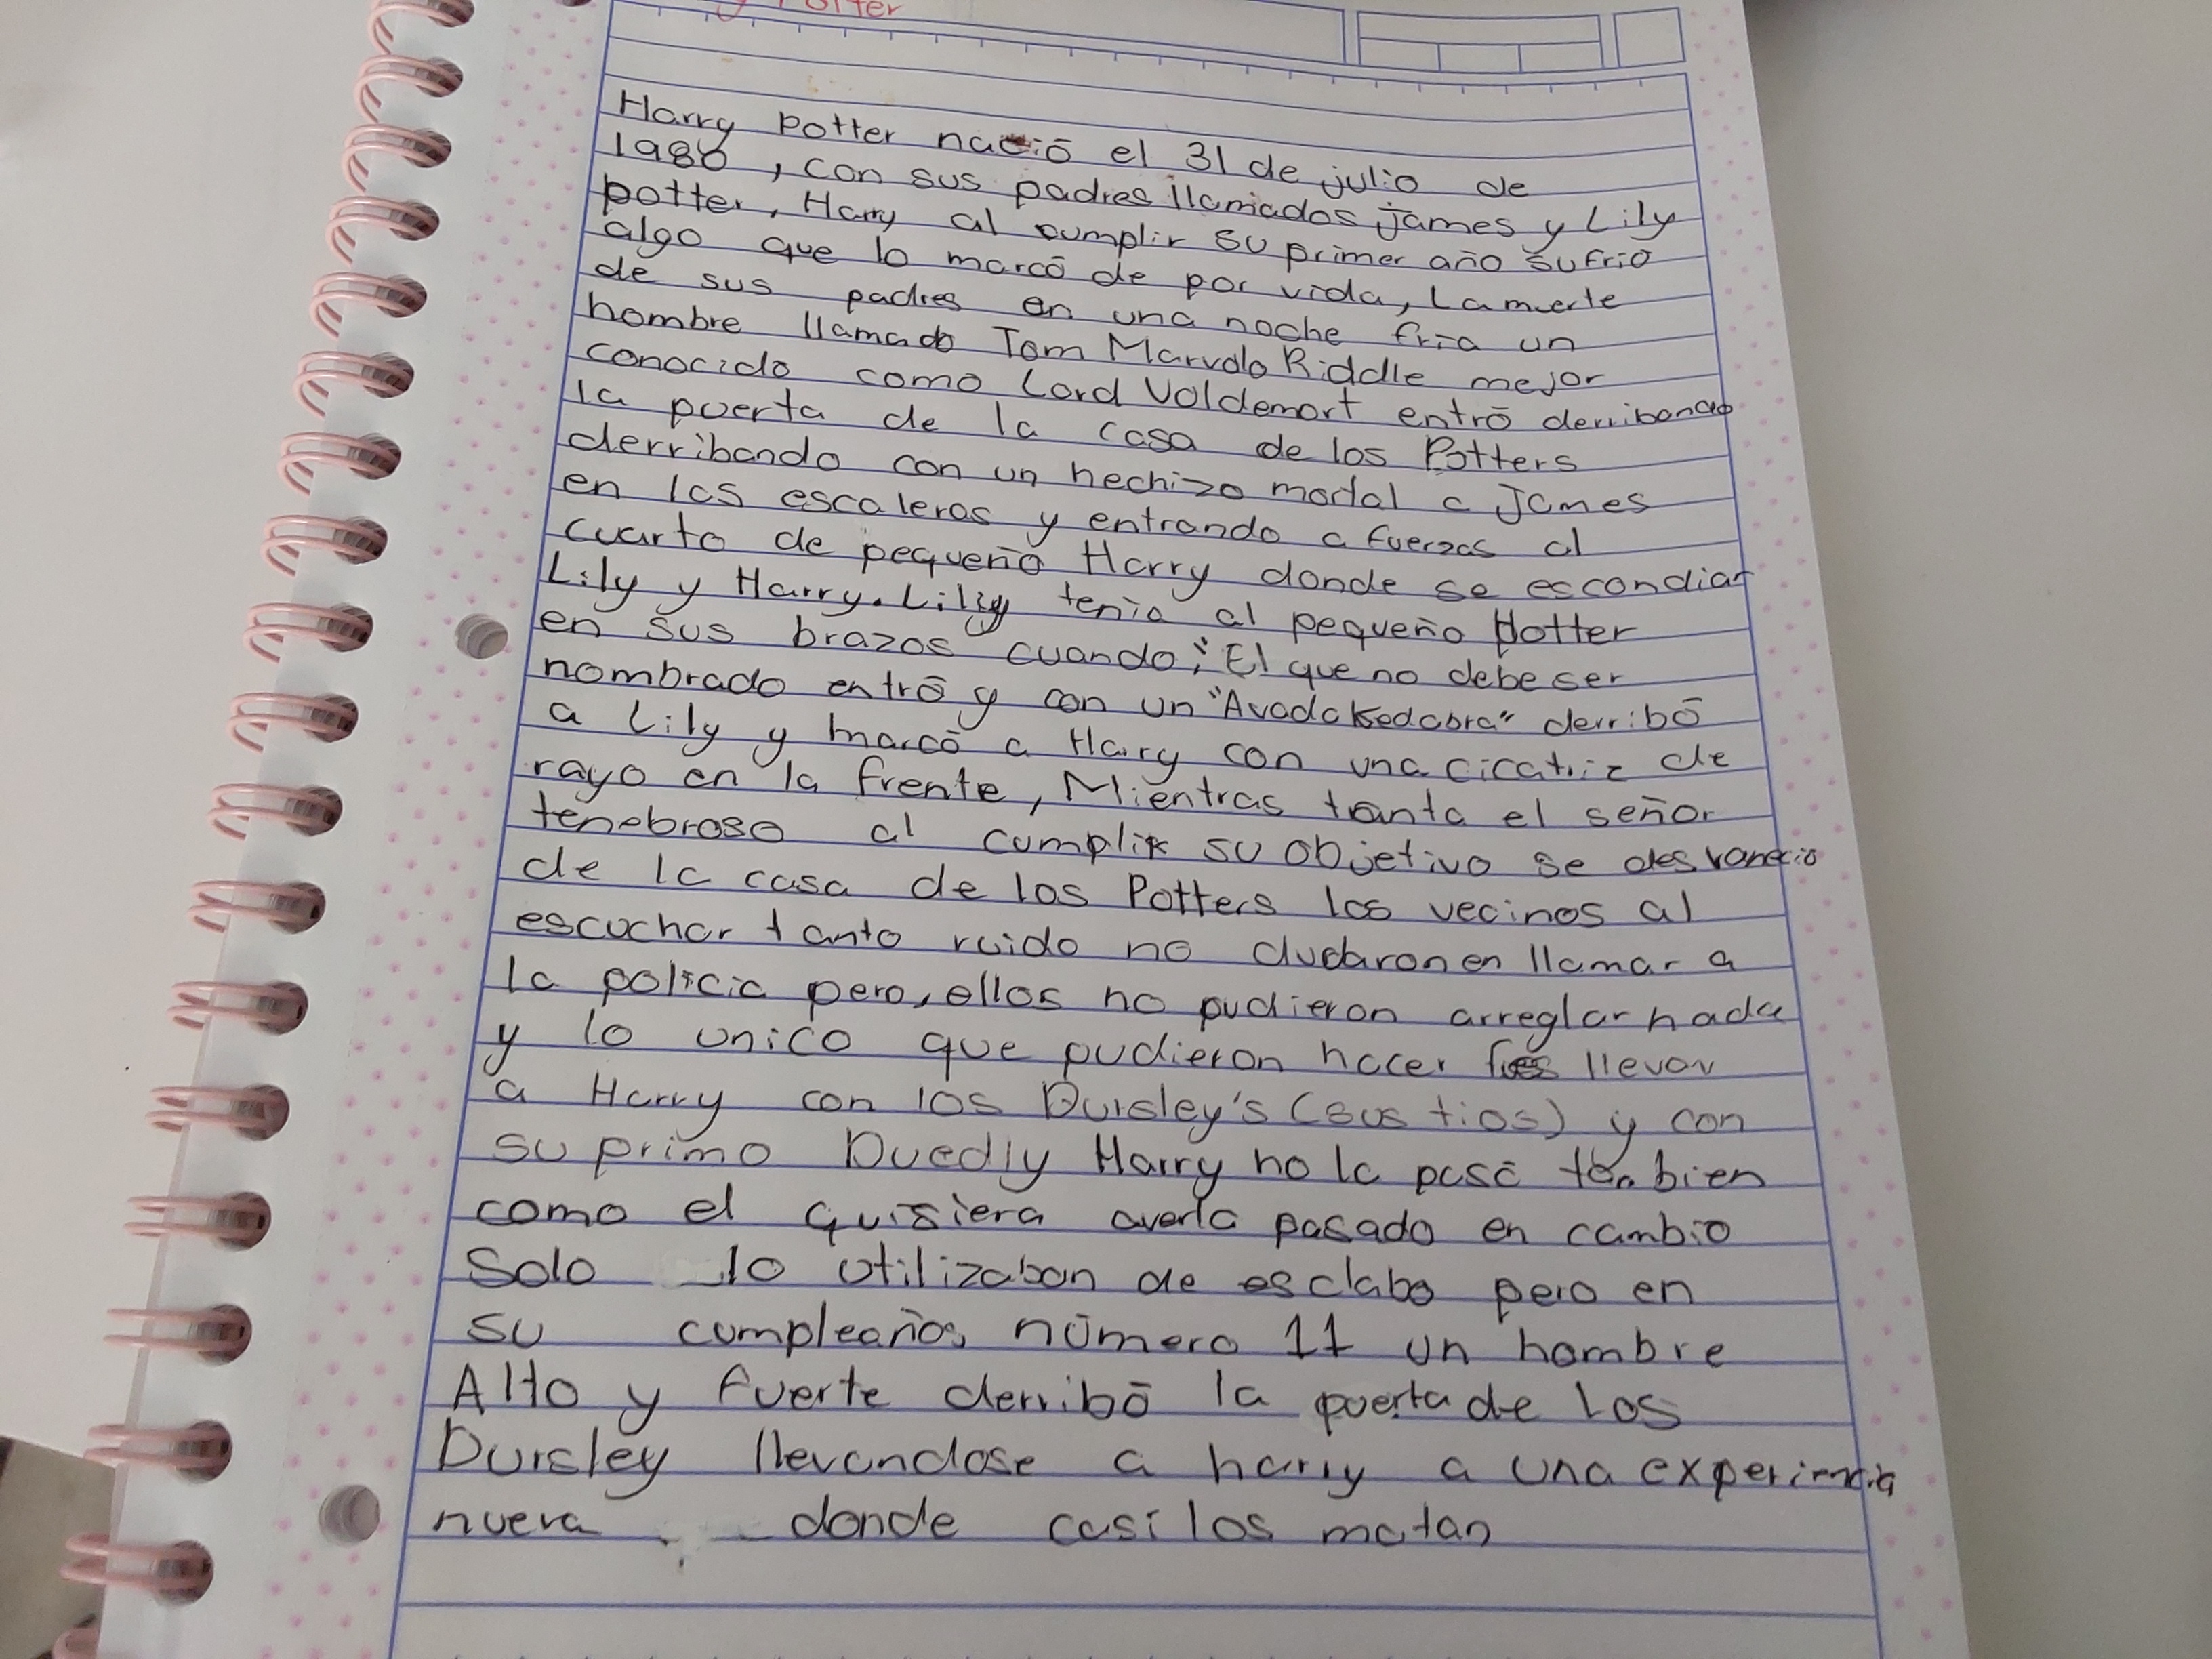 Potter
Harry Potter nació el 31 de julio de
1980, con sus padres llamados james y Lily
potter, Harry al cumplir su primer año sufrió
algo que lo marcó de por vida, La muerte
de sus padres en una noche fría un
hombre llamado Tom Marvolo Riddle mejor
conocido como Lord Voldemort entró derribando
la puerta de la casa de los Potters
derribando con un hechizo mortal a James
en las escaleras y entrando a fuerzas al
cuarto de pequeño Harry donde se escondian
Lily y Harry. Lilly tenía al pequeño Potter
en sus brazos cuando; "El que no debe ser
nombrado entró y con un "Avada Kedabra" derribó
a Lily y marcó a Harry con una cicatriz de
rayo en la frente, Mientras tanta el señor
tenebroso al cumplir su objetivo se desvaneció
de la casa de los Potters los vecinos al
escuchar tanto ruido no dudaron en llamar a
la policia pero, ellos no pudieron arreglar nada
y lo unico que pudieron hacer fue llevar
a Harry con los Dursley's (sus tios) y con
su primo Duedly Harry no la pasó tan bien
como el quisiera averla pasado en cambio
Solo lo utilizaban de esclabo pero en
su cumpleaños número 11 un hombre
Alto y fuerte derribó la puerta de Los
Dursley llevandose a harry a una experiencia
nueva donde casi los matan